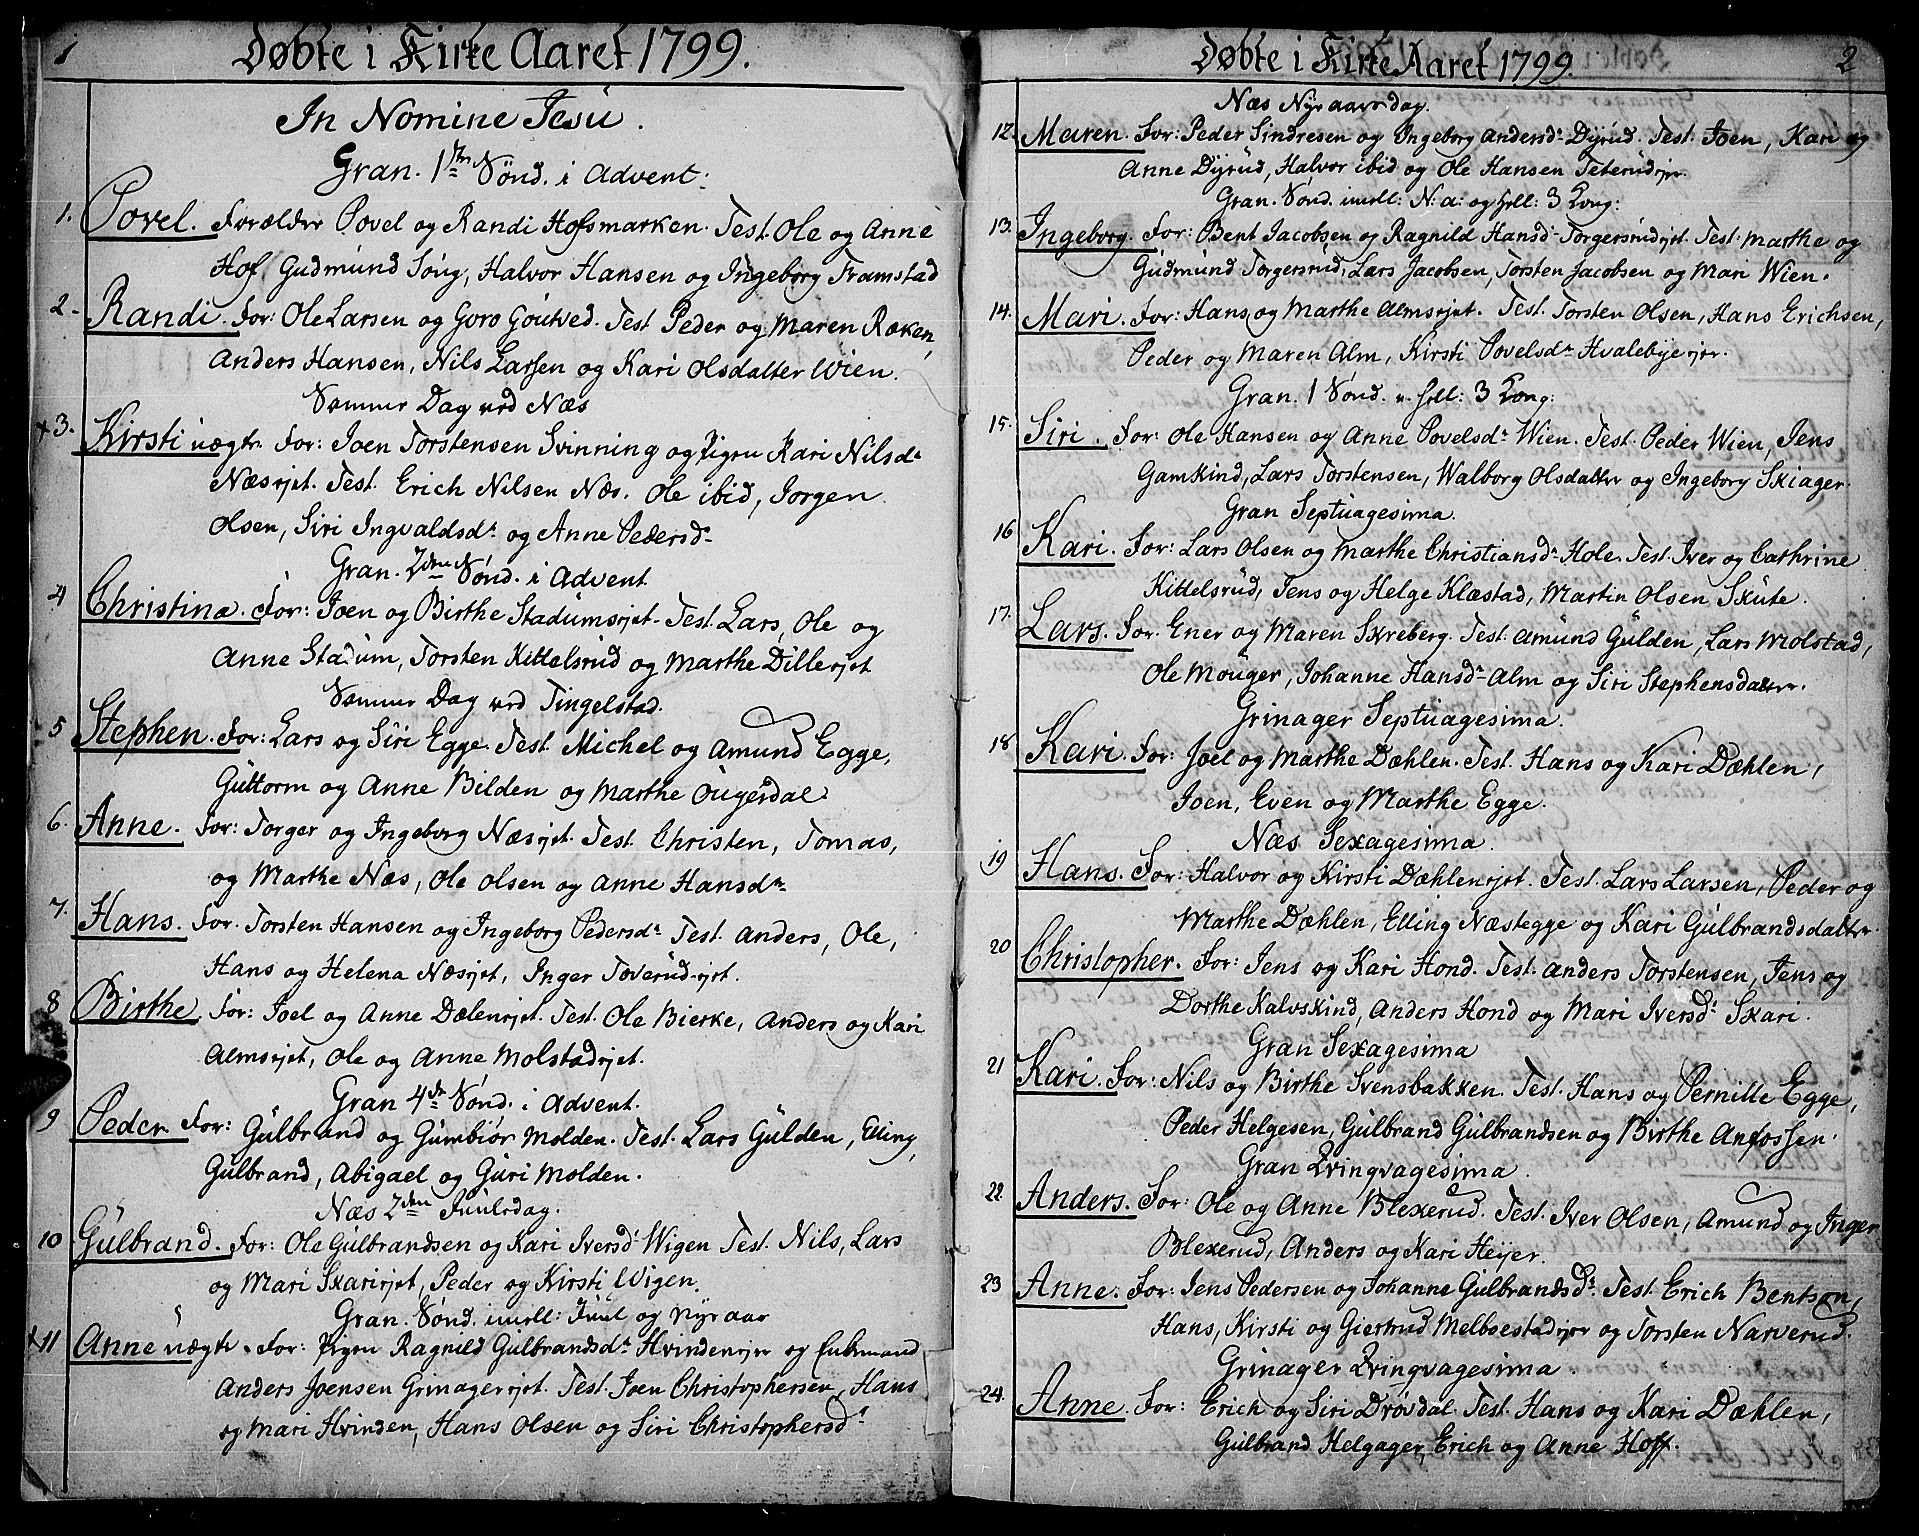 1
Døbte i Kirke Aaret 1799.
In Nomine Jesu.
Gran. 1ste Sönd. i Advent:
1. Povel. Forældre Povel og Randi Hofsmarken. Test. Ole og Anne
Hof, Gudmund Sóug, Halvor Hansen og Ingeborg Framstad
2. Randi. For: Ole Larsen og Goro Góutved. Test Peder og Maren Røken,
Anders Hansen, Nils Larsen og Kari Olsdatter Wien.
Samme Dag ved Næs
+3. Kirsti uægte. For: Joen Torstensen Svinning og Pigen Kari Nilsdr
Næsejet. Test. Erich Nilsen Næs. Ole ibid, Jorgen
Olsen, Siri Ingvaldsdr og Anne Pedersdr
Gran. 2den Sönd. i Advent
4 Christina. For: Joen og Birthe Stadumsejet. Test. Lars, Ole og
Anne Stadum, Torsten Kittelsrud og Marthe Dillerejet
Samme Dag ved Tingelstad.
5 Stephen. For: Lars og Siri Egge. Test. Michel og Amund Egge,
Guttorm og Anne Bilden og Marthe Ougerdal.
6. Anne. For: Torger og Ingeborg Næsejet. Test. Christen, Tomas,
og Marthe Næs, Ole Olsen og Anne Hansdr
7. Hans. For. Torsten Hansen og Ingeborg Pedersdr Test. Anders, Ole,
Hans og Helena Næsejet, Inger Toverudejet.
8 Birthe. For: Joel og Anne Dælenejet. Test. Ole Bierke, Anders og Kari
Almsejet, Ole og Anne Molstadejet.
Gran 4de Sönd. i Advent.
9 Peder. For: Gulbrand og Gumbiór Molden. Test. Lars Gulden, Elling,
Gulbrand, Abigael og Guri Molden.
Næs 2den Juuledag.
10 Gulbrand. For: Ole Gulbrandsen og Kari Iversdr Wigen Test. Nils, Lars
og Mari Skariejet, Peder og Kirsti Wigen.
Gran. Sönd. imell: Juul og Nyraar
+11 Anne uægte. For: Pigen Ragnild Gulbrandsdr Hvindenejer og Enkemand
Anders Joensen Grinagerejet. Test. Joen Christophersen, Hans
og Mari Hvinden, Hans Olsen og Siri Christophersdr
2
Døbte i Kirke Aaret 1799.
Næs Nyraarsdag.
12. Maren. For: Peder Sindresen og Ingeborg Andersdr Dyrud. Test. Joen, Kari og
Anne Dyrud, Halvor ibid og Ole Hansen Teterudejer.
Gran. Sönd. imell: N: a: og hell: 3 Kong:
13. Ingeborg. For: Bent Jacobsen og Ragnild Hansdr Torgersrudejet. Test. Marthe og
Gudmund Torgersrud, Lars Jacobsen, Torsten Jacobsen og Mari Wien.
14. Mari. For: Hans og Marthe Almsejet. Test. Torsten Olsen, Hans Erichsen,
Peder og Maren Alm, Kirsti Povelsdr Hvalebyejer.
Gran. 1 Sönd. e. hell: 3 Kong:
15. Siri. For: Ole Hansen og Anne Povelsdr Wien. Test. Peder Wien, Jens
Gamkind, Lars Torstensen, Walborg Olsdatter og Ingeborg Skiager.
Gran Septuagesima.
16 Kari. For: Lars Olsen og Marthe Christiansdr Hole. Test. Iver og Cathrine
Kittelsrud, Jens og Helge Klæstad, Martin Olsen Skute.
17. Lars. For. Ener og Maren Skreberg. Test. Amund Gulden, Lars Molstad,
Ole Mouger, Johanne Hansdr Alm og Siri Stephensdatter.
Grinager Septuagesima.
18 Kari. For: Joel og Marthe Dæhlen. Test. Hans og Kari Dæhlen,
Joen, Even og Marthe Egge.
Næs Sexagesima.
19 Hans. For: Halvor og Kirsti Dæhlenejet. Test. Lars Larsen, Peder og
Marthe Dæhlen, Elling Næstegge og Kari Gulbrandsdatter.
20 Christopher. For: Jens og Kari Hond. Test. Anders Torstensen, Jens og
Dorthe Kalvskind, Anders Hond og Mari Iversdr Skari.
Gran Sexagesima
21 Kari. For: Nils og Birthe Svensbakken. Test. Hans og Pernille Egge,
Peder Helgesen, Gulbrand Gulbrandsen og Birthe Anfossen.
Gran Qvinqvagesima.
22. Anders. For: Ole og Anne Blekerud. Test. Iver Olsen, Amund og Inger
Blekerud, Anders og Kari Heijer.
23 Anne. For: Jens Pedersen og Johanne Gulbrandsdr. Test. Erich Bentson,
Hans, Kirsti og Giertrud Melboestadejer og Torsten Narverud.
Grinager Qvinqvagesima.
24. Anne. For: Erich og Siri Dróvdal. Test. Hans og Kari Dæhlen,
Gulbrand Helgager, Erich og Anne Hoff.